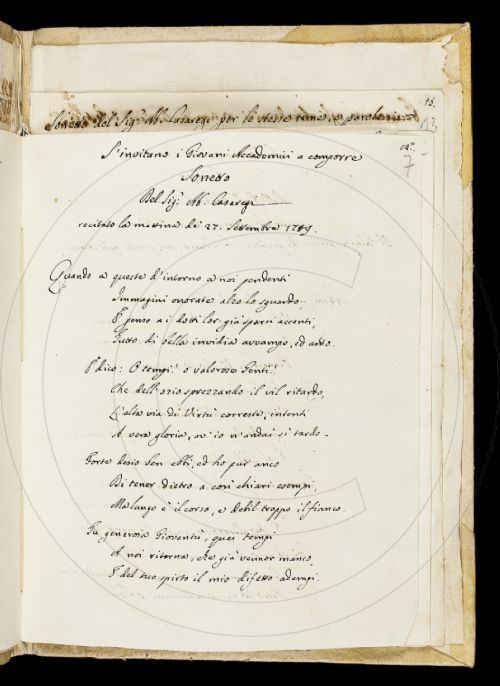 15.
Sonetto del Sig.r Ab. Casaregi per le stesse rime, e parole
13
S'invitano i Giovani Accademici a comporre
7
Sonetto
Del Sig.r Ab. Casaregi
recitato la mattina de' 27. Settembre 1749.
Quando a queste d'intorno a noi pendenti
Immagini onorate alzo lo sguardo,
E penso a i dotti lor già sparsi accenti,
Tutto di bella invidia avvampo, ed ardo.
E dico: O tempi! o valorose Genti!
Che dell'ozio sprezzando il vil ritardo,
L'alta via di Virtù correste, intenti
A vera gloria, ov'io n'andai sì tardo.
Forte desio ben ebbi, ed ho pur anco
Di tener dietro a così chiari esempi,
Ma lungo è il corso, e debil troppo il fianco.
Tu generosa Gioventù, quei tempi
A noi ritorna, che già venner manco,
E del tuo spirto il mio difetto adempi.